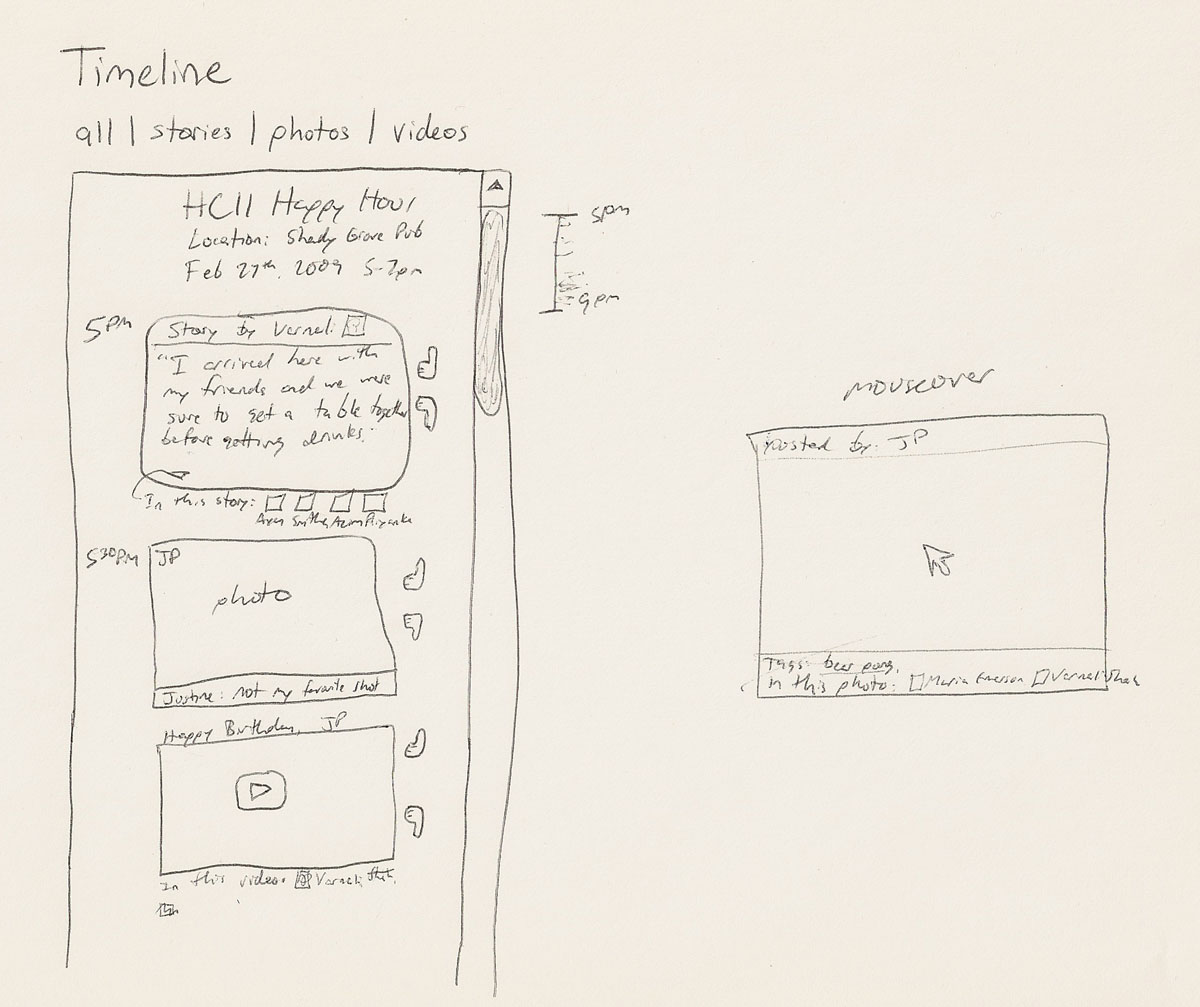 Timeline
all | stories | photos | videos
HCII Happy Hour
Location: Shady Grove Pub
Feb 27th, 2009 5-7pm
5pm
9pm
5PM
Story by Vernali
"I arrived here with
my friends and we were
sure to get a table together
before getting drinks."
In this story:
Smitha Priyanka
530PM
JP
photo
Justine: not my favorite shot
Happy Birthday, JP
In this video: Vernali Shah,
mouseover
Posted by: JP
Tags: beer pong,
In this photo: Maria Emerson Vernali Shah